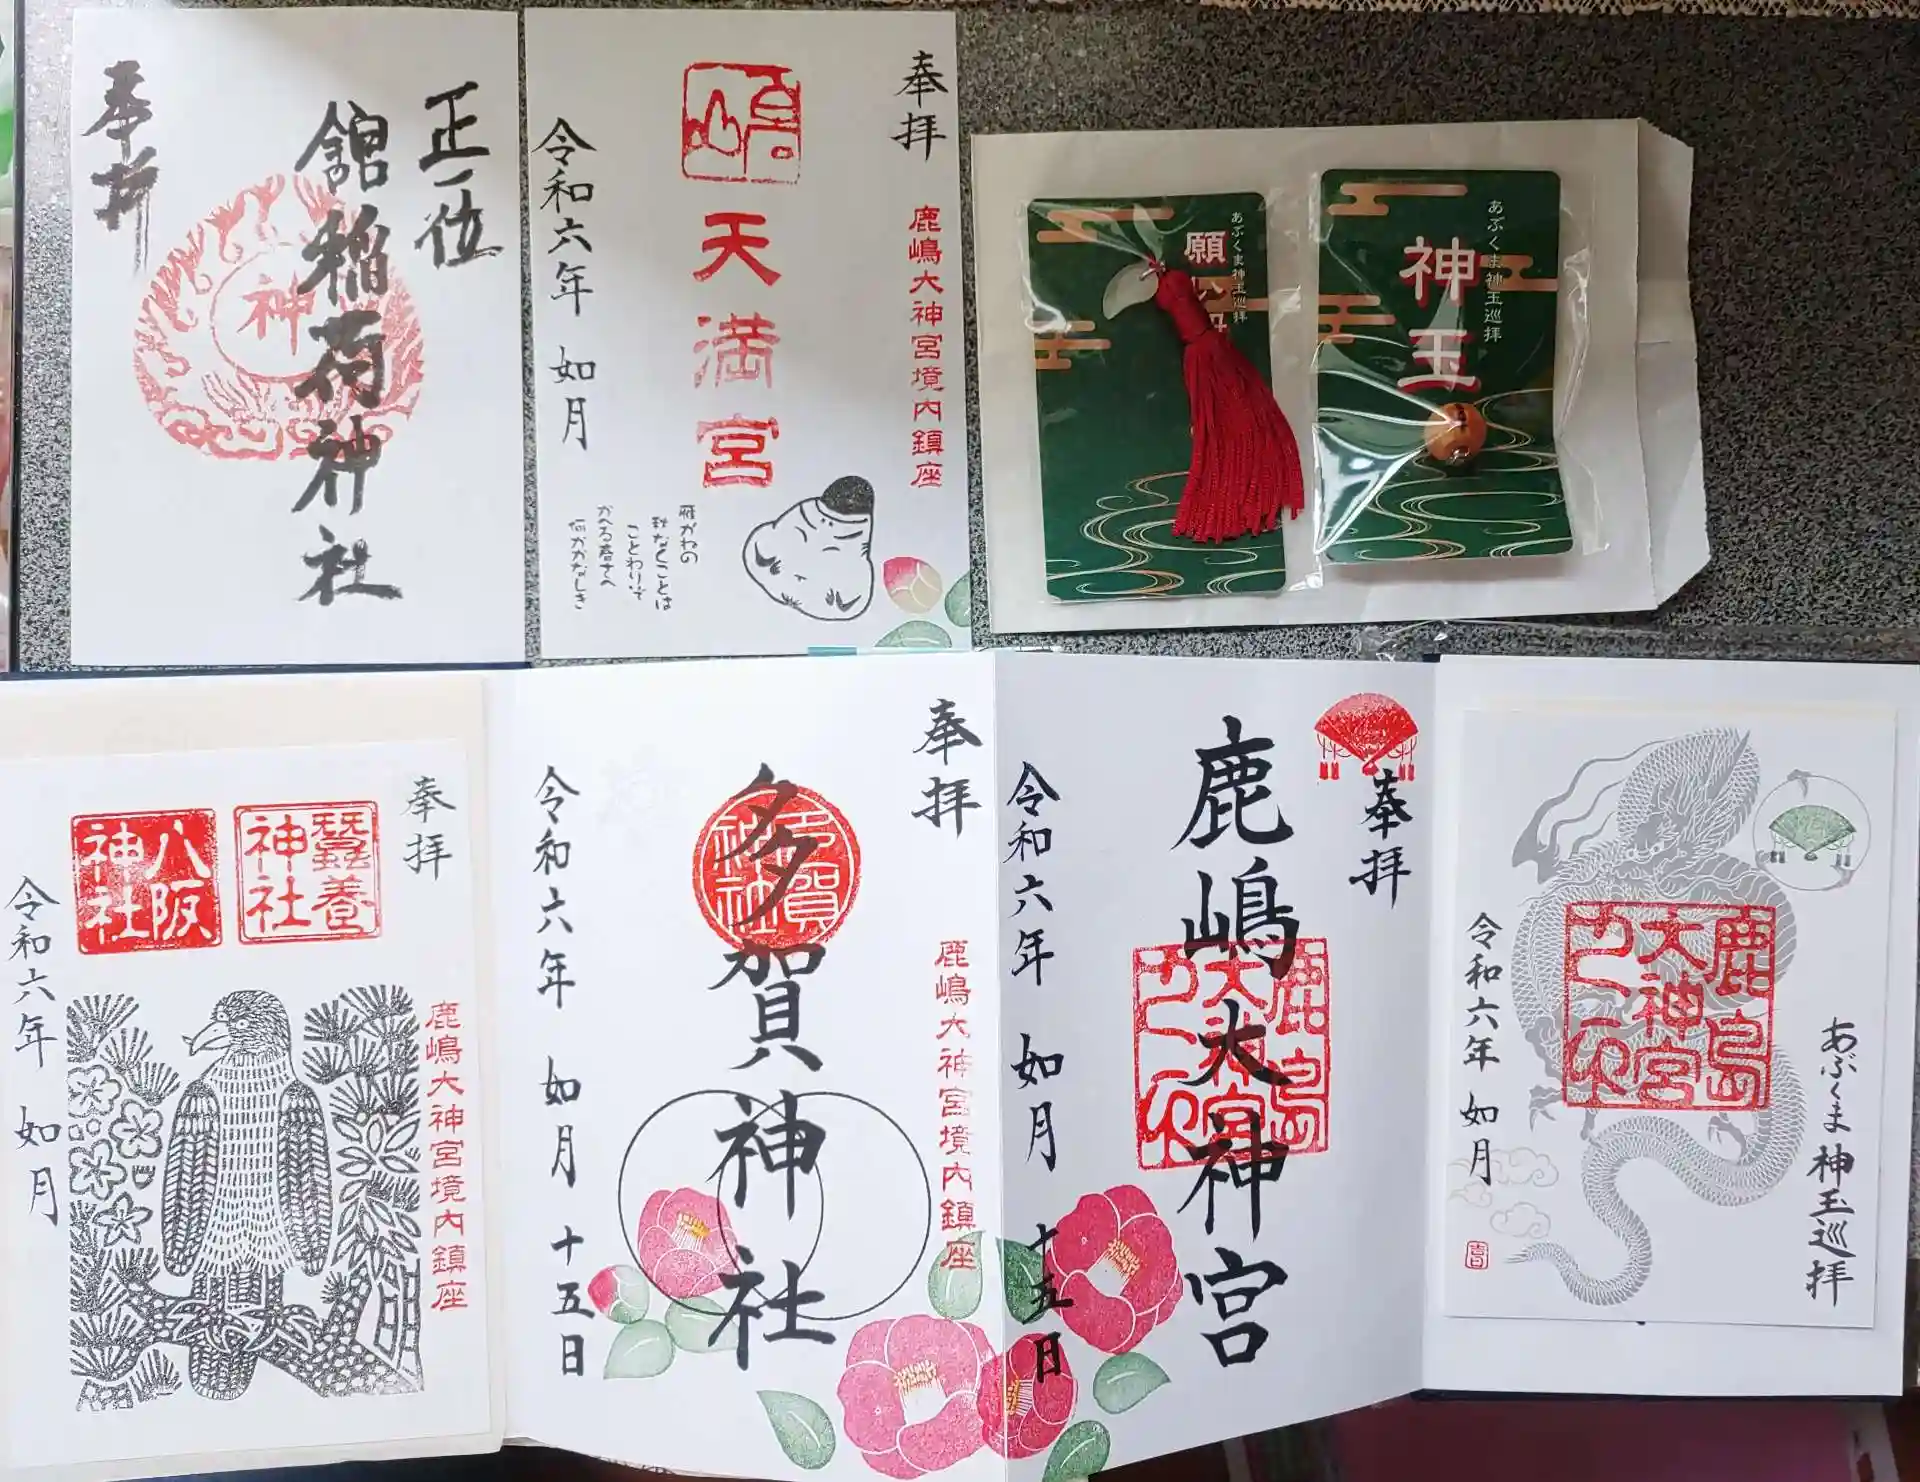 正一位
舘稲荷神社
神
奉拝
奉拝
鹿嶋大神宮境内鎮座
嶋
天満宮
雁がねの
秋なくことは
ことわりぞ
かへる春さへ
何かかなしき
令和六年 如月
あぶくま神玉巡拝
願い
あぶくま神玉巡拝
神玉
奉拝
蠶養神社
八阪神社
鹿嶋大神宮境内鎮座
令和六年 如月
奉拝
多賀神社
多賀神社
鹿嶋大神宮境内鎮座
令和六年 如月 十五日
奉拝
鹿嶋大神宮
鹿島大神宮
令和六年 如月 十五日
あぶくま神玉巡拝
鹿島大神宮
令和六年 如月